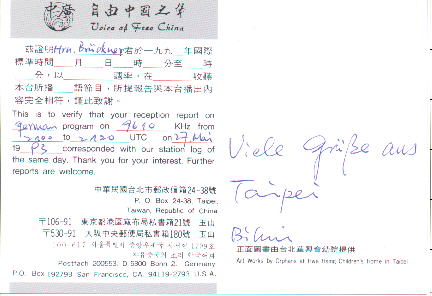 中廣 自由中國之聲
Voice of Free China
茲證明Hrn. Brückner君於一九九 年國際
標準時間 月 日 時 分至 時
分,以 調率,在 收聽
本台所播 語節目,所提報告與本台播出內
容完全相符,謹此致謝。
This is to verify that your reception report on
german program on 9610 KHz from
2100 to 2120 UTC on 27 Mai
19 93 corresponded with our station log of
the same day. Thank you for your interest. Further
reports are welcome.
中華民國台北市郵政信箱24-38號
P. O. Box 24-38, Taipei,
Taiwan, Republic of China
〒106-91 東京都港區麻布局私書箱21號 玉山
〒530-91 大阪中央郵便局私書箱180號 玉山
Postfach 200553, D-5300 Bonn 2, Germany
P.O. Box 192793 San Francisco, CA. 94119-2793 U.S.A.
Viele Grüße aus
Taipei
正面圖畫由台北華興育幼院提供
Art Works by Orphans at Hwa Hsing Children's Home in Taipei